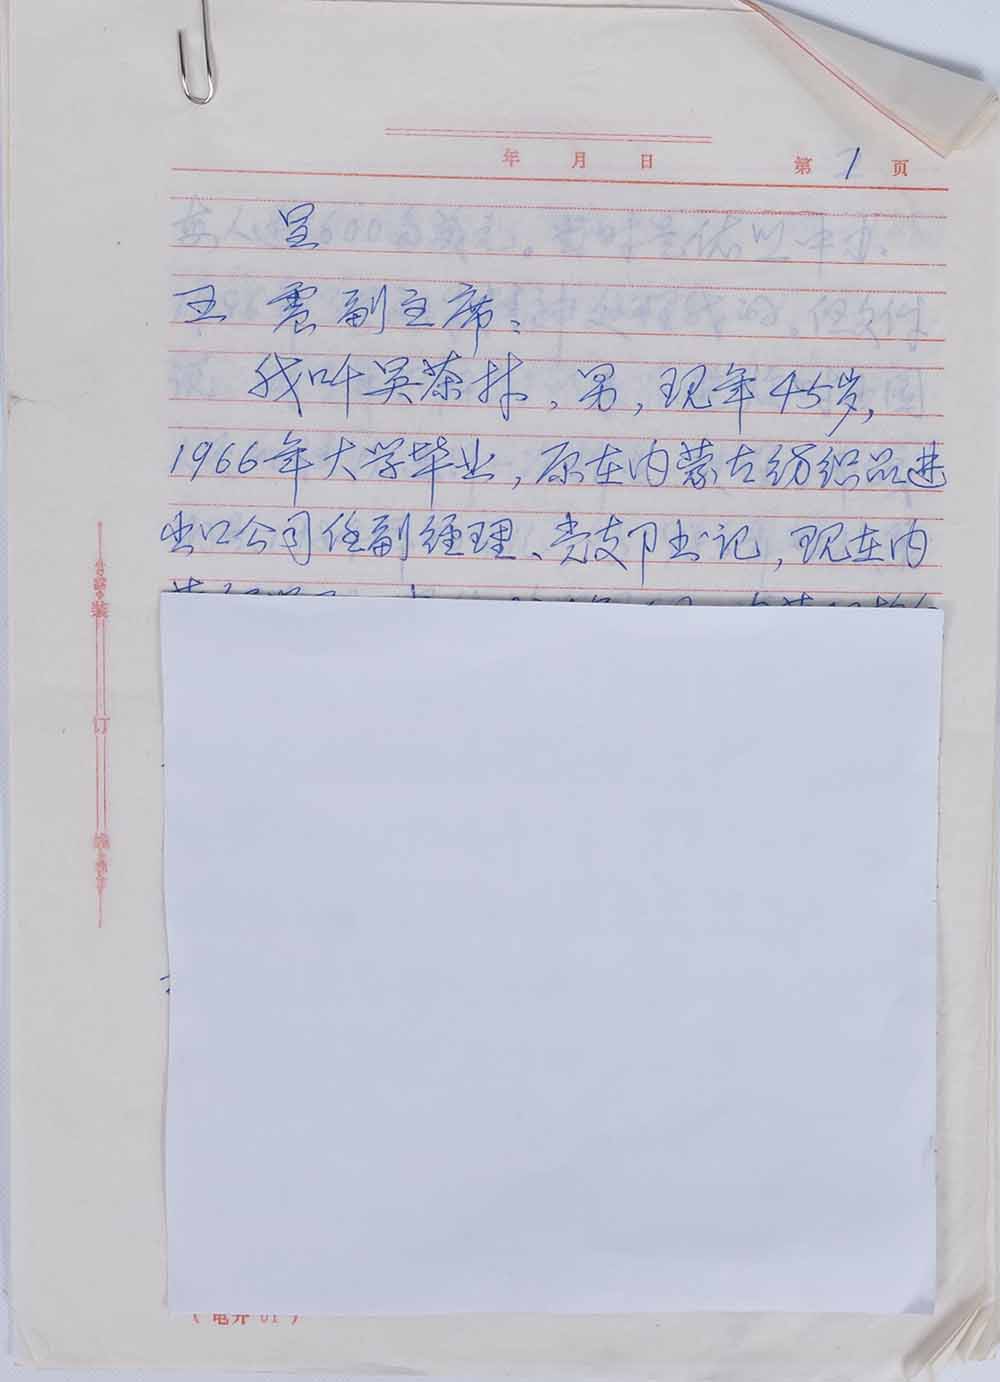 年 月 日 第 1 页
呈
王 震副主席：
我叫吴茶林，男，现年45岁，
1966年大学毕业，原在内蒙古纺织品进
出口公司任副经理、党支卩书记，现在内
装
订
线